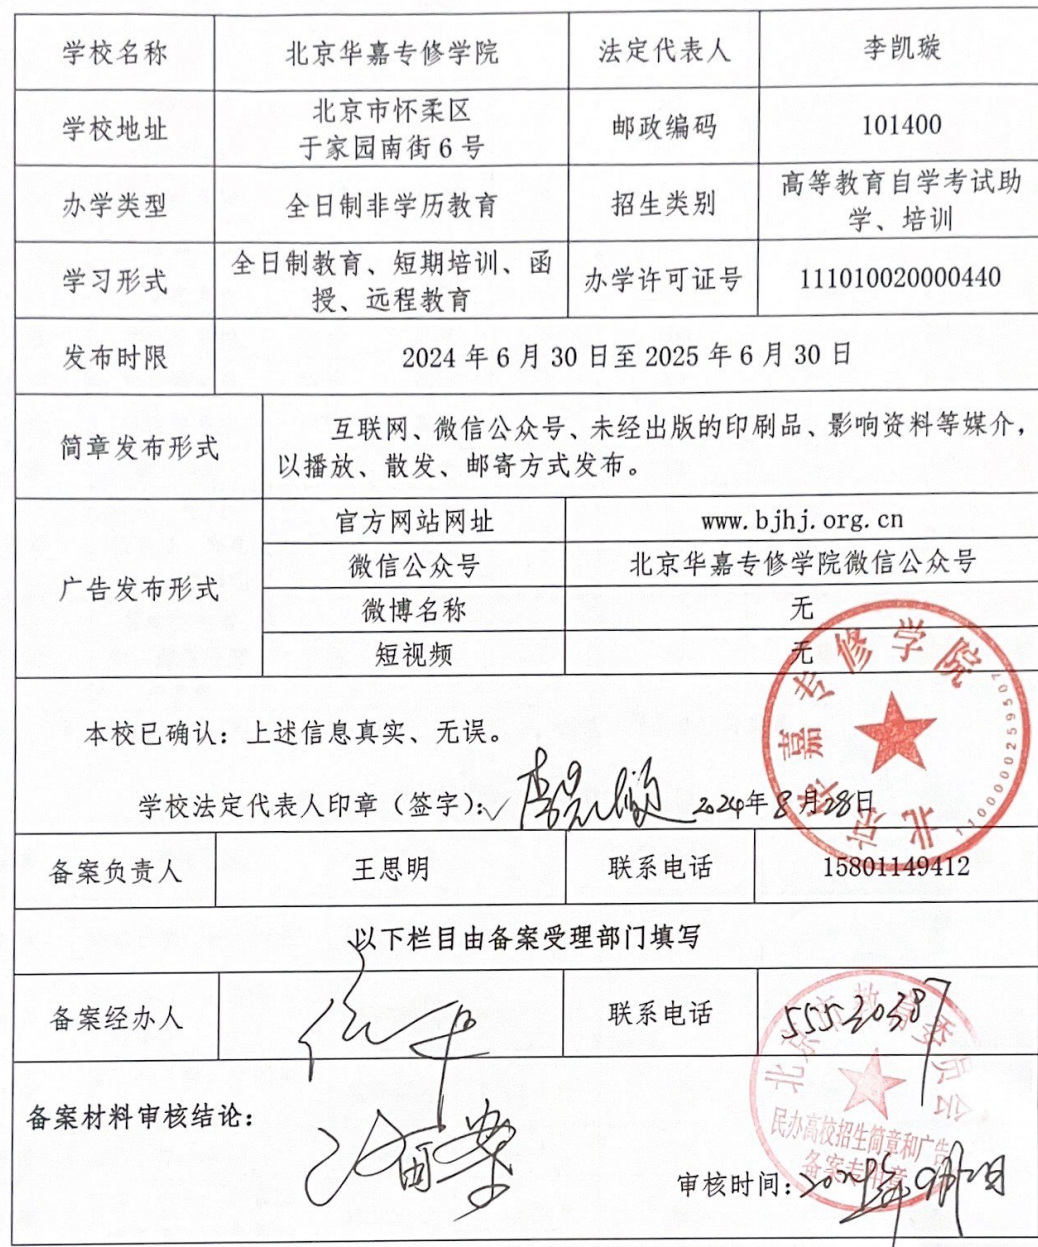 学校名称 北京华嘉专修学院 法定代表人 李凯璇
学校地址 北京市怀柔区
于家园南街6号 邮政编码 101400
办学类型 全日制非学历教育 招生类别 高等教育自学考试助
学、培训
学习形式 全日制教育、短期培训、函
授、远程教育 办学许可证号 111010020000440
发布时限 2024年6月30日至2025年6月30日
简章发布形式 互联网、微信公众号、未经出版的印刷品、影响资料等媒介，
以播放、散发、邮寄方式发布。
广告发布形式 官方网站网址 www.bjhj.org.cn
微信公众号 北京华嘉专修学院微信公众号
微博名称 无
短视频 无
北京华嘉专修学院
1100000259507
本校已确认：上述信息真实、无误。
学校法定代表人印章（签字）： 李凯璇 2024年8月28日
备案负责人 王思明 联系电话 15801149412
以下栏目由备案受理部门填写
备案经办人 联系电话 55530387
备案材料审核结论： 已备案
北京市教育委员会
民办高校招生简章和广告
备案专用章
审核时间：